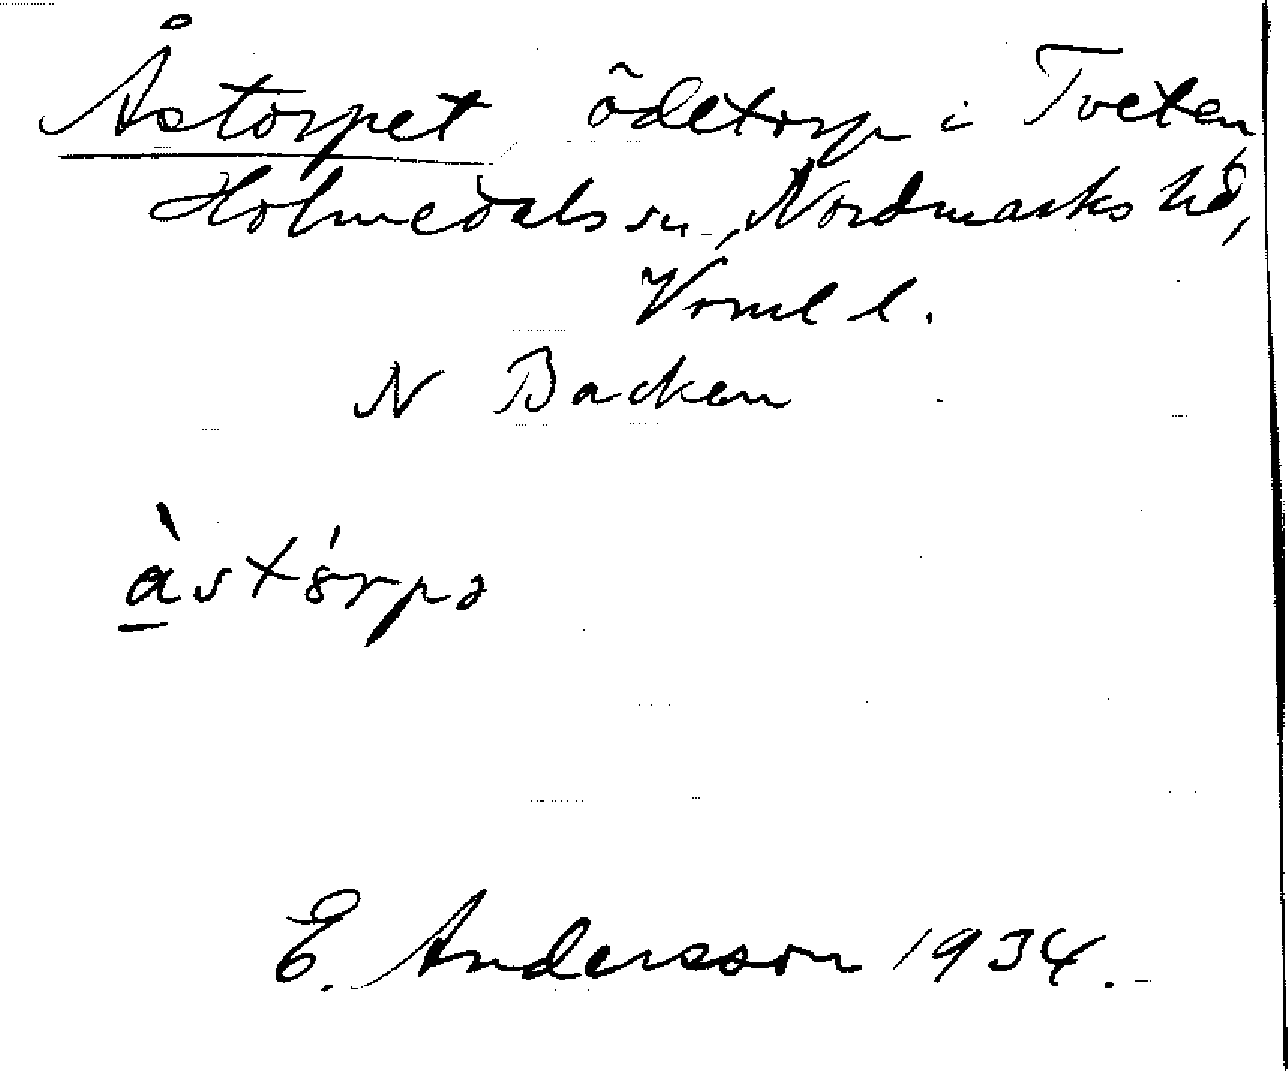 Åstorpet ödetorp i Tveten
Holmedals sn, Nordmarks hd,
Vrml l.
N Backen
àstórpə
E. Andersson 1934.